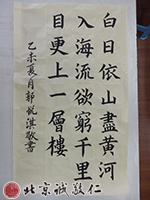 白日依山盡黃河
入海流欲窮千里
目更上一層樓
乙未夏月郭悅淇敬書
北京誠敬仁